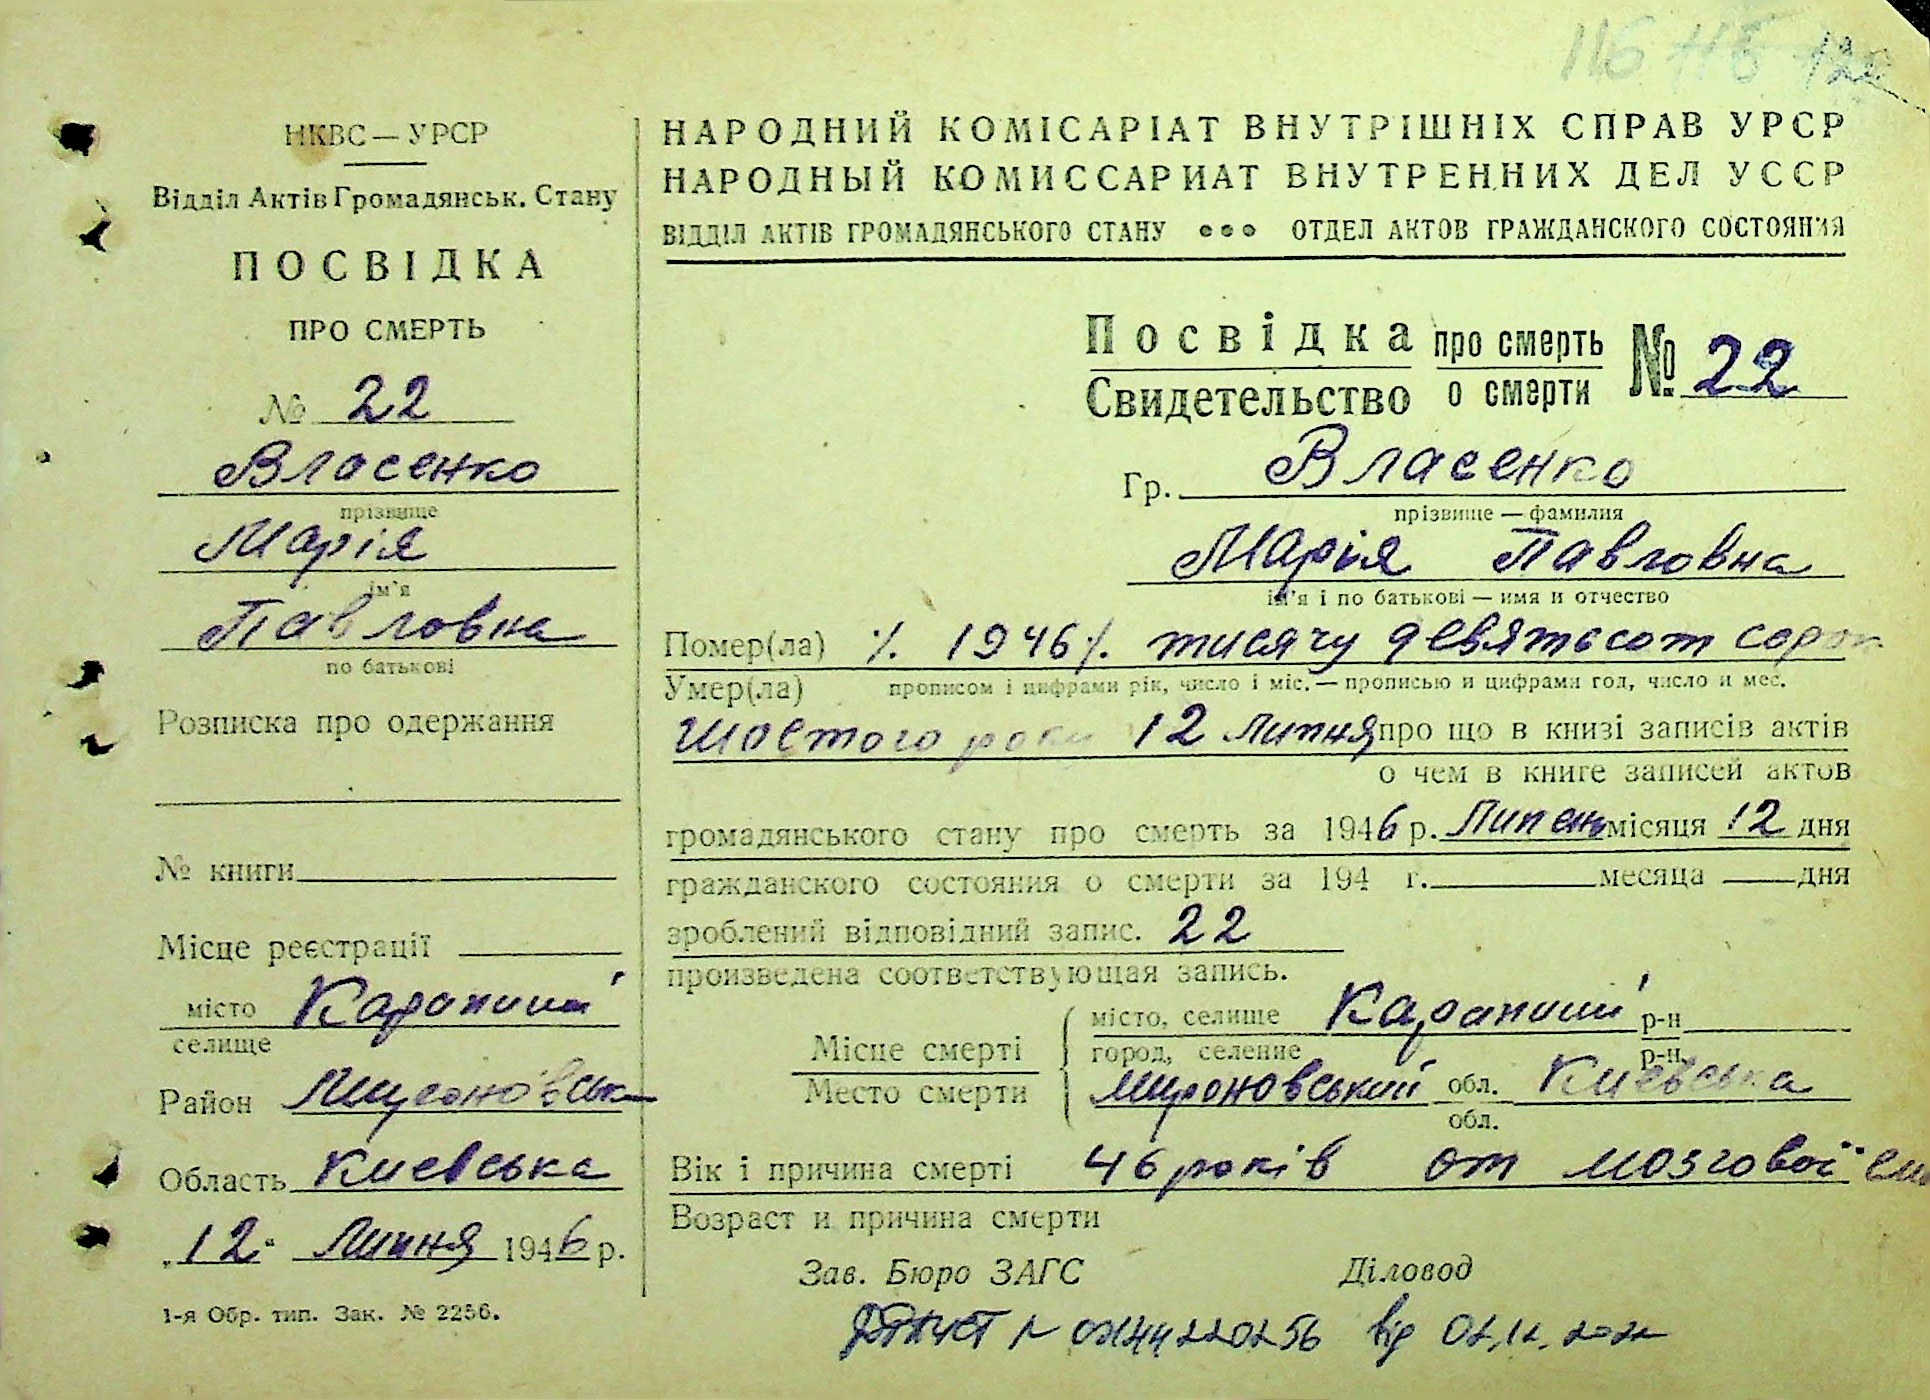 116 115
НКВС — УРСР
Відділ Актів Громадянськ. Стану
ПОСВІДКА
ПРО СМЕРТЬ
№ 22
Власенко
прізвище
Марія
ім'я
Павловна
по батькові
Розписка про одержання
№ книги
Місце реєстрації
місто Карапиші
селище
Район Мироновська
Область Киевська
„12“ Липня 1946 р.
1-я Обр. тип. Зак. № 2256.
НАРОДНИЙ КОМІСАРІАТ ВНУТРІШНІХ СПРАВ УРСР
НАРОДНЫЙ КОМИССАРИАТ ВНУТРЕННИХ ДЕЛ УССР
ВІДДІЛ АКТІВ ГРОМАДЯНСЬКОГО СТАНУ ••• ОТДЕЛ АКТОВ ГРАЖДАНСКОГО СОСТОЯНИЯ
Посвідка про смерть № 22
Свидетельство о смерти
Гр. Власенко
прізвище — фамилия
Марія Павловна
ім'я і по батькові — имя и отчество
Помер(ла) ·/. 1946/. тисячу девятьсот сорок
Умер(ла) прописом і цифрами рік, число і міс. — прописью и цифрами год, число и мес.
шостого року 12 Липня про що в книзі записів актів
о чем в книге записей актов
громадянського стану про смерть за 1946 р. Липень місяця 12 дня
гражданского состояния о смерти за 194 г. месяца дня
зроблений відповідний запис. 22
произведена соответствующая запись.
місто, селище Карапиші р-н
Місце смерті город, селение р-н
Место смерти Мироновський обл. Киевська
обл.
Вік і причина смерті 46 років от мозгової
Возраст и причина смерти
Зав. Бюро ЗАГС Діловод
від 02.12.2022